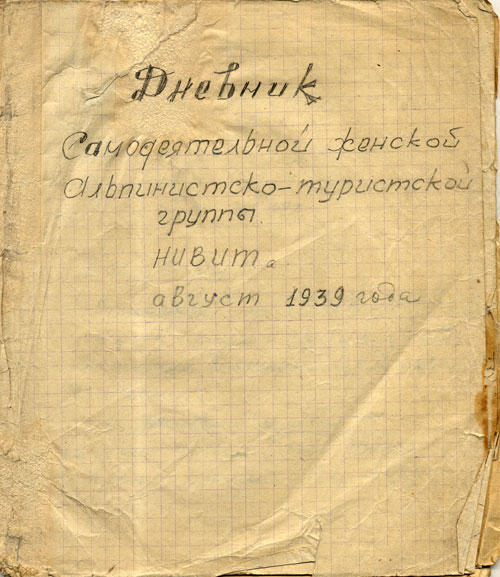 Дневник
Самодеятельной женской
Альпинистско-туристской
группы
НИВИТа
август 1939 года